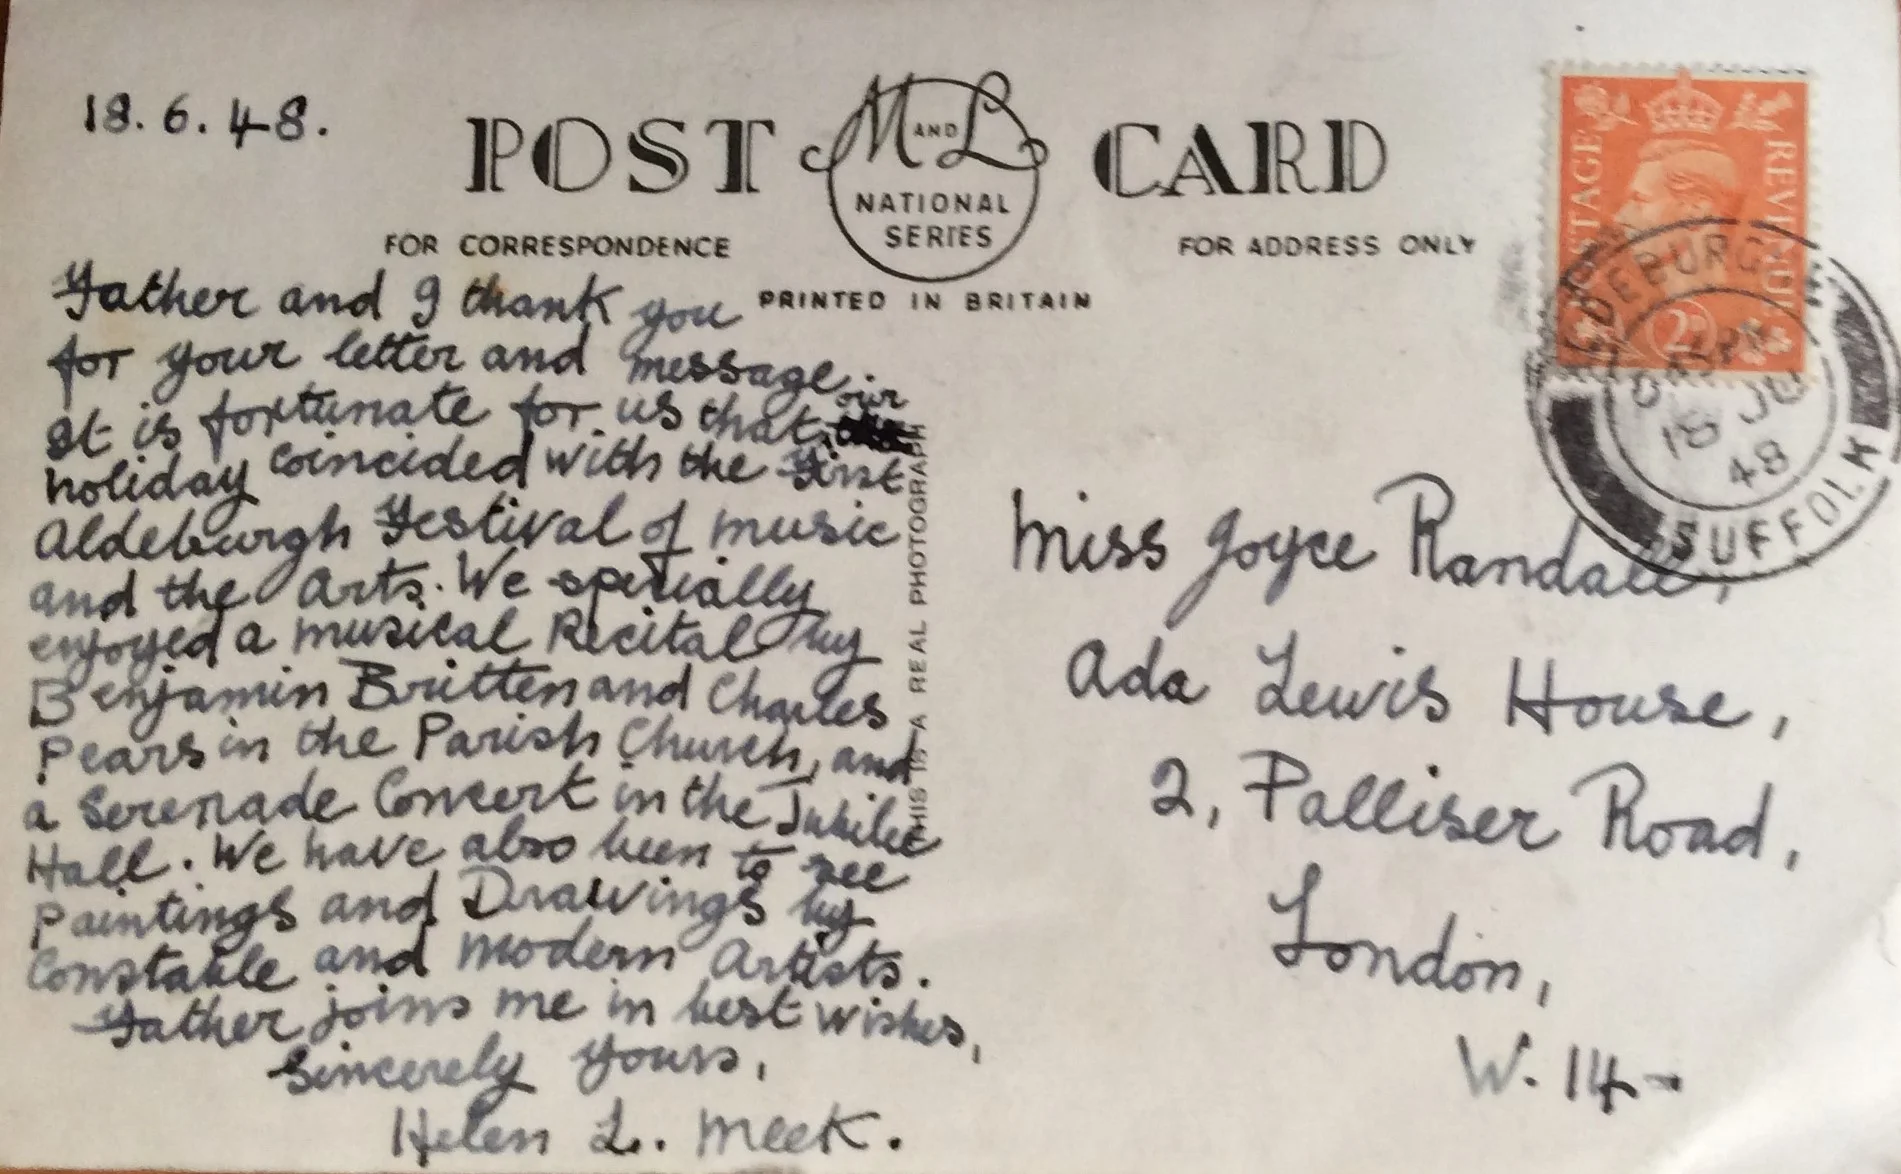 18.6.48.
POST CARD
M AND L
NATIONAL
SERIES
FOR CORRESPONDENCE
FOR ADDRESS ONLY
PRINTED IN BRITAIN
Father and I thank you
for your letter and message.
It is fortunate for us that our
holiday coincided with the First
Aldeburgh Festival of music
and the Arts. We specially
enjoyed a musical Recital by
Benjamin Britten and Charles
Pears in the Parish Church, and
a Serenade Concert in the Jubilee
Hall. We have also been to see
Paintings and Drawings by
Constable and Modern Artists.
Father joins me in best wishes,
Sincerely yours,
Helen L. Meek.
THIS IS A REAL PHOTOGRAPH
POSTAGE
REVENUE
2D
ALDEBURGH
18 JU
48
SUFFOLK
Miss Joyce Randall,
Ada Lewis House,
2, Palliser Road,
London,
W.14-